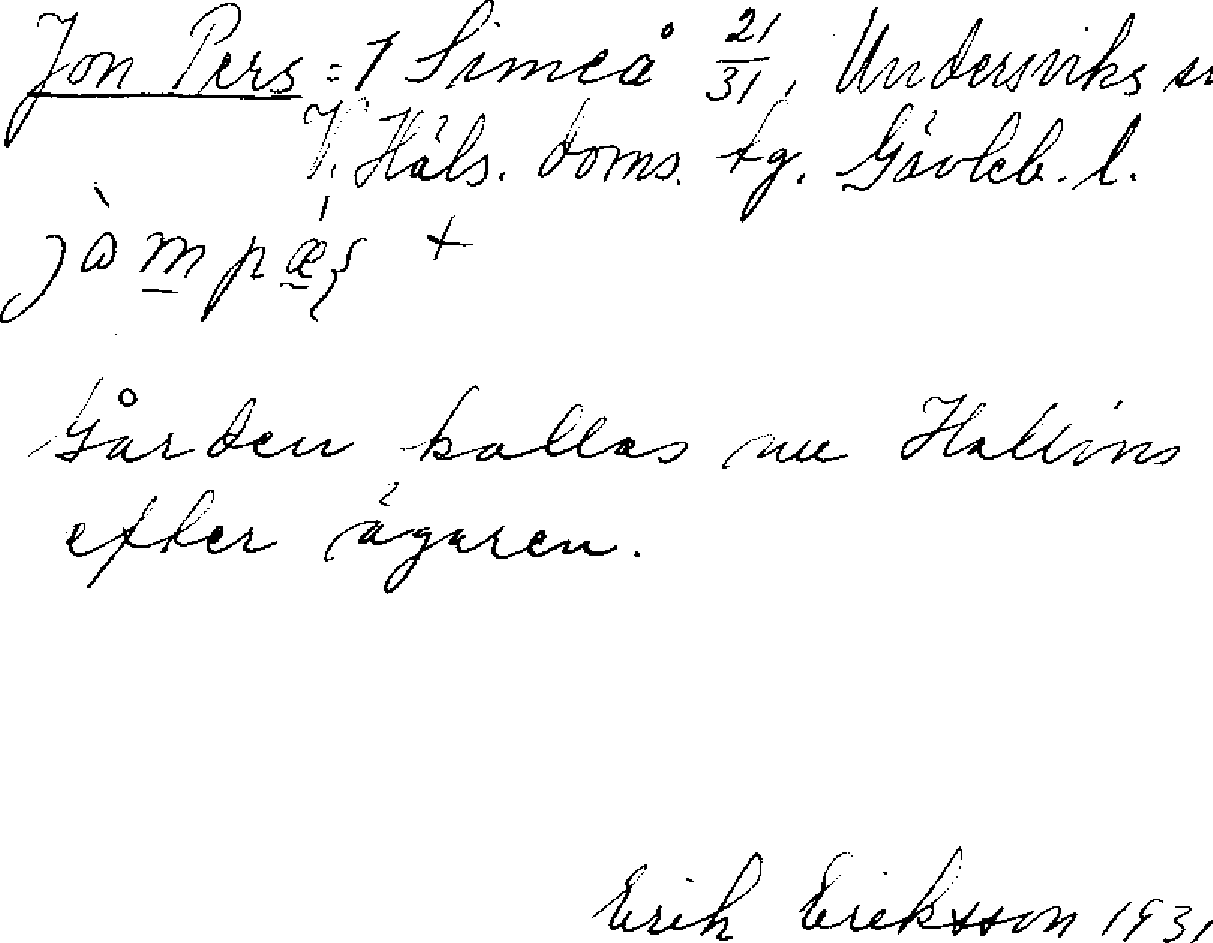 Jon Pers = 1 Simeå 21/31, Underviks sn
V. Häls. doms. tg. Gävleb. l.
jò m̲ p ǽ̲ +
Gården kallas nu Hallins
efter ägaren.
Erik Eriksson 1931